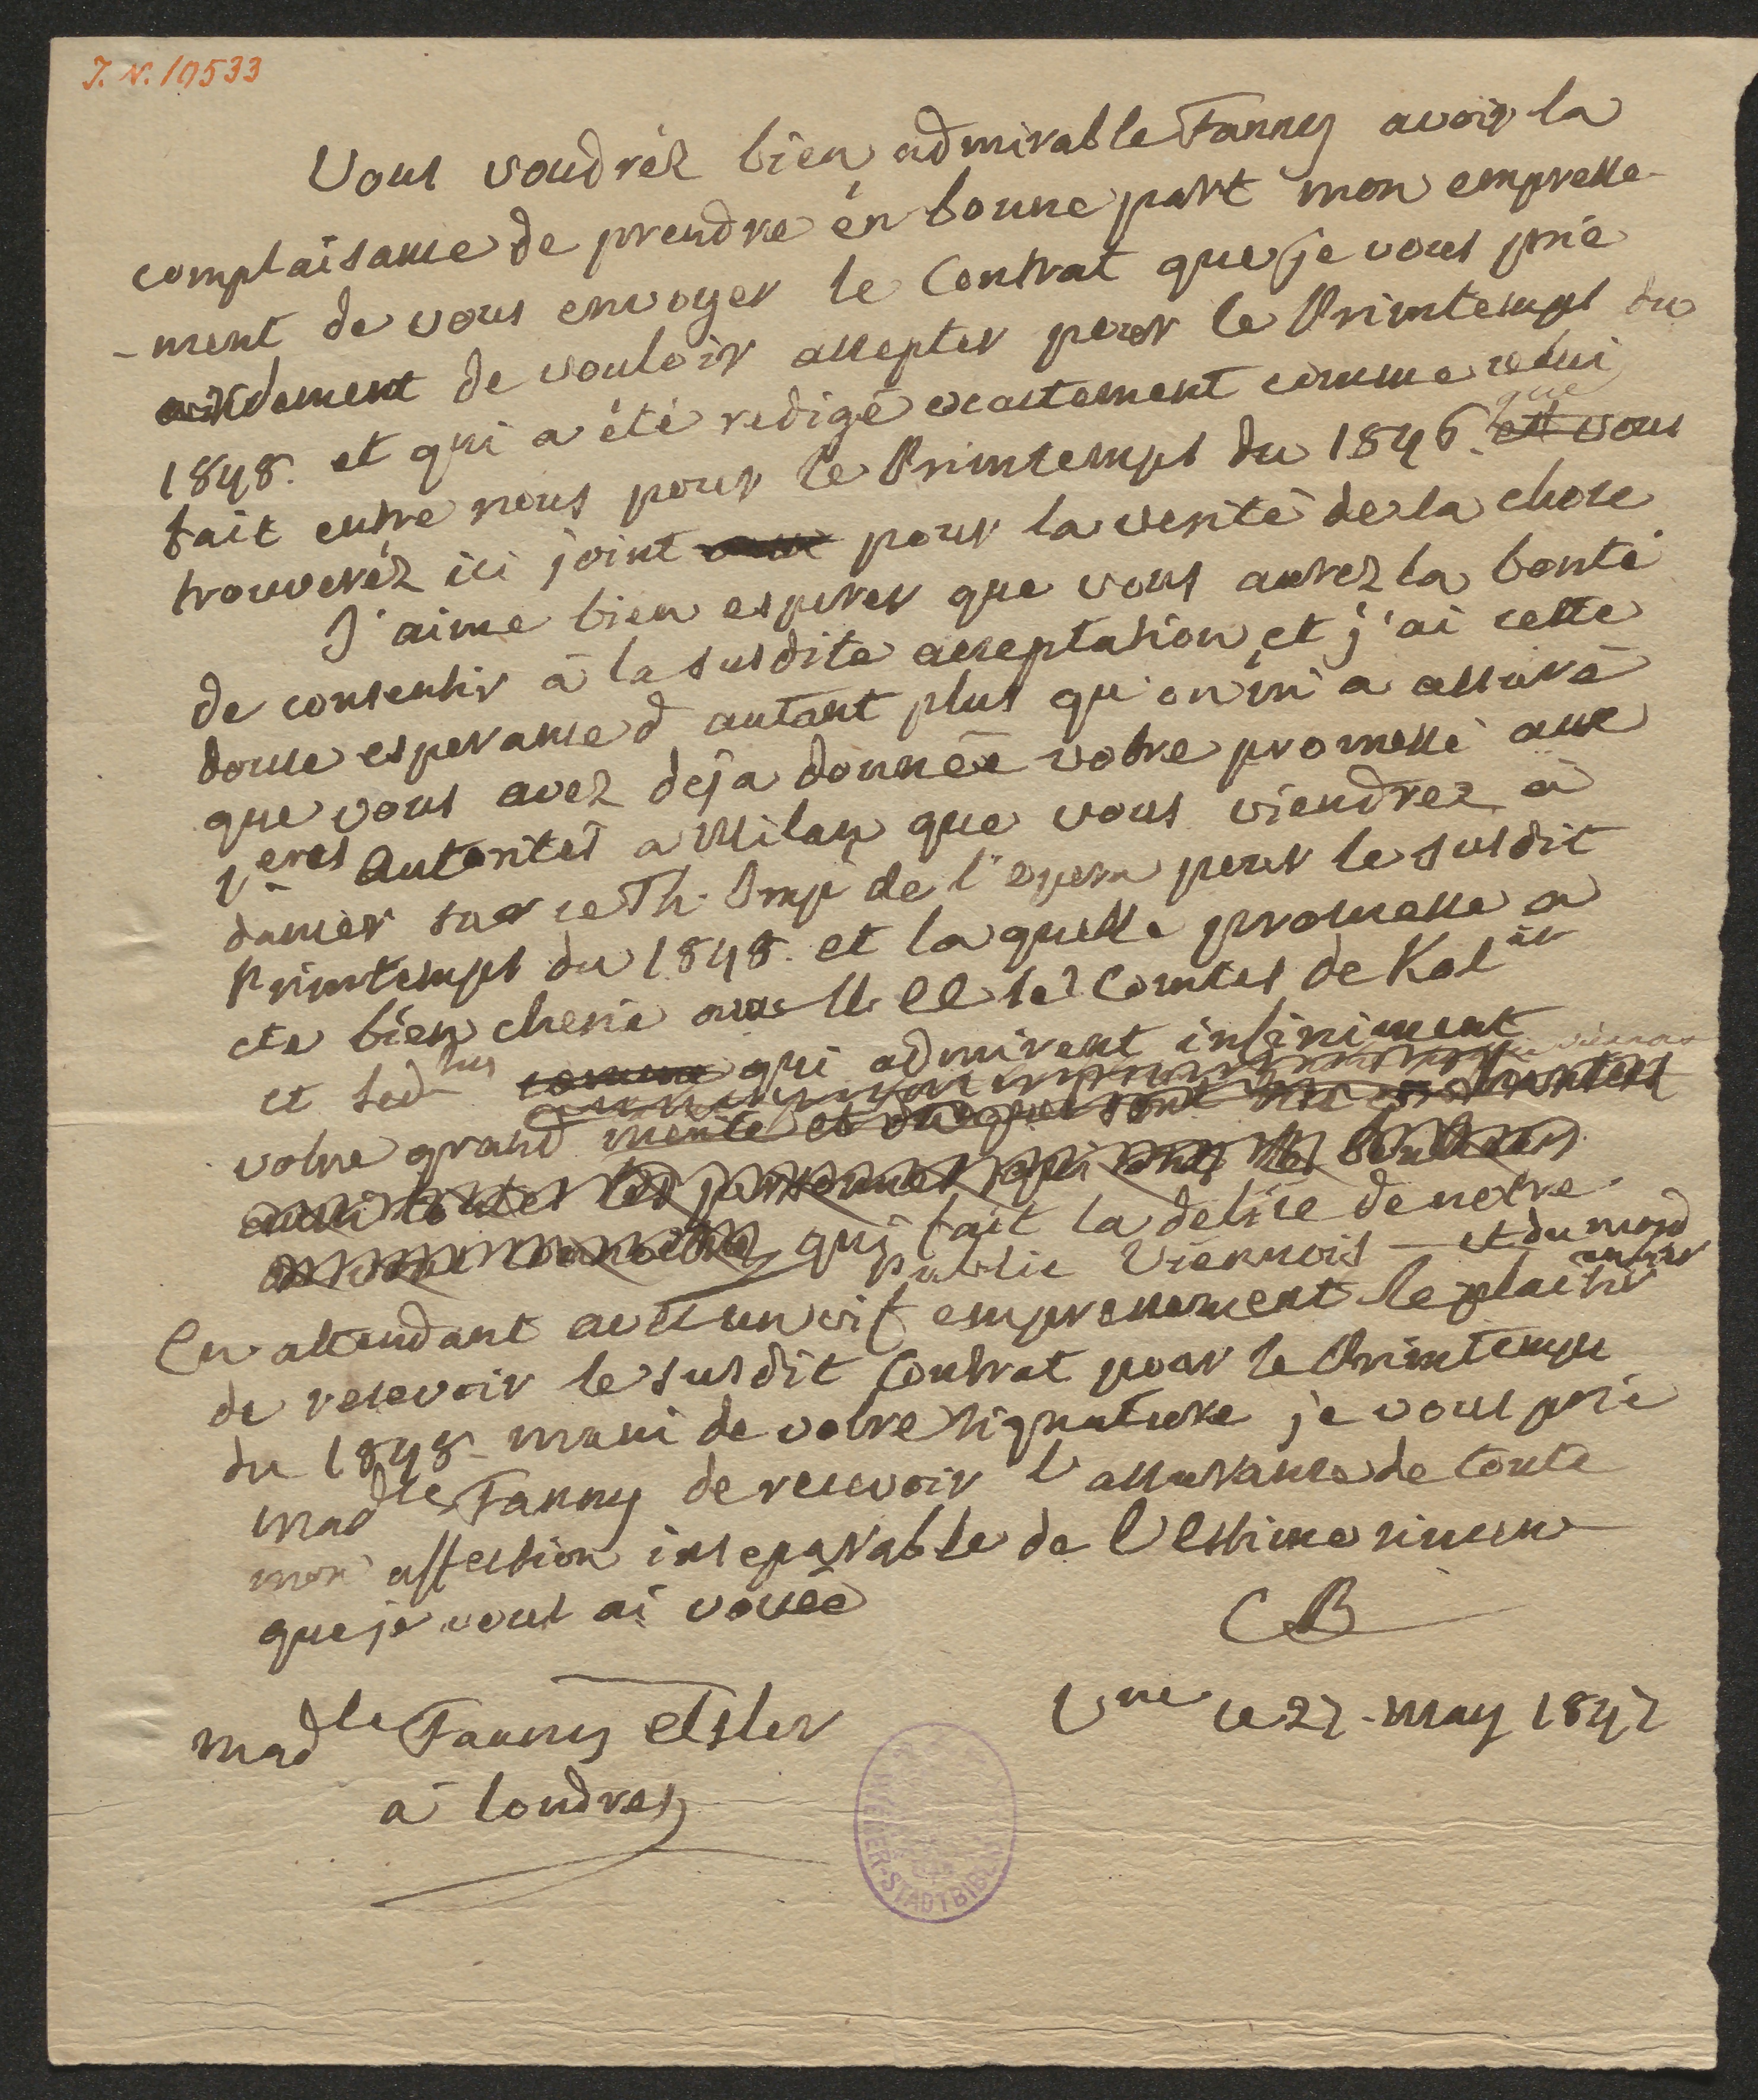 J. N. 19533
Vous voudréz bien admirable Fanny avoir la
complaisance de prendre en bonne part mon empresse-
-ment de vous envoyer le Contrat que je vous prie
de vouloir accepter pour le Printemps du
1848. et qui a été redigé exactement comme celui
fait entre nous pour le Printemps du 1846. que vous
trouveréz ici joint pour la verité de la chose
J'aime bien esperer que vous aurez la bonté
de consentir à la susdite acceptation, et j'ai cette
douce esperance d'autant plus qu'on m'a assuré
que vous avez deja donnée votre promesse aux
1eres Autorités a Milan que vous viendrez à
danser sur ce Th. Imp de l'opera pour le susdit
Printemps du 1848. et la quelle promesse a
ete bien cherie aux les Comtes de Kol
et Sed comme qui admirent infiniment
votre grand merite et
aussi toutes les personnes qui ont
qui fait la delice de notre
public Viennois — et du mond
entier
En attendant avec un vif empressement le plaisir
de recevoir le susdit Contrat pour le Printemps
du 1848 muni de votre signature je vous prie
Madlle Fanny de recevoir l'assurance de toute
mon affection inseparable de l'estime sincere
que je vous ai vouée
CB
Vne le 27. May 1847
Madlle Fanny Elsler
à Londres
WIENER-STADTBIBL